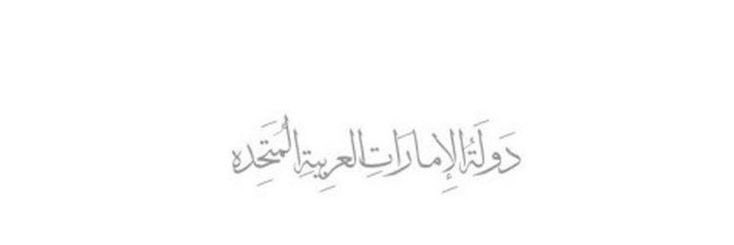 دَولَةُ الإِمارَاتِ العربِيةِ المُتَحِّده